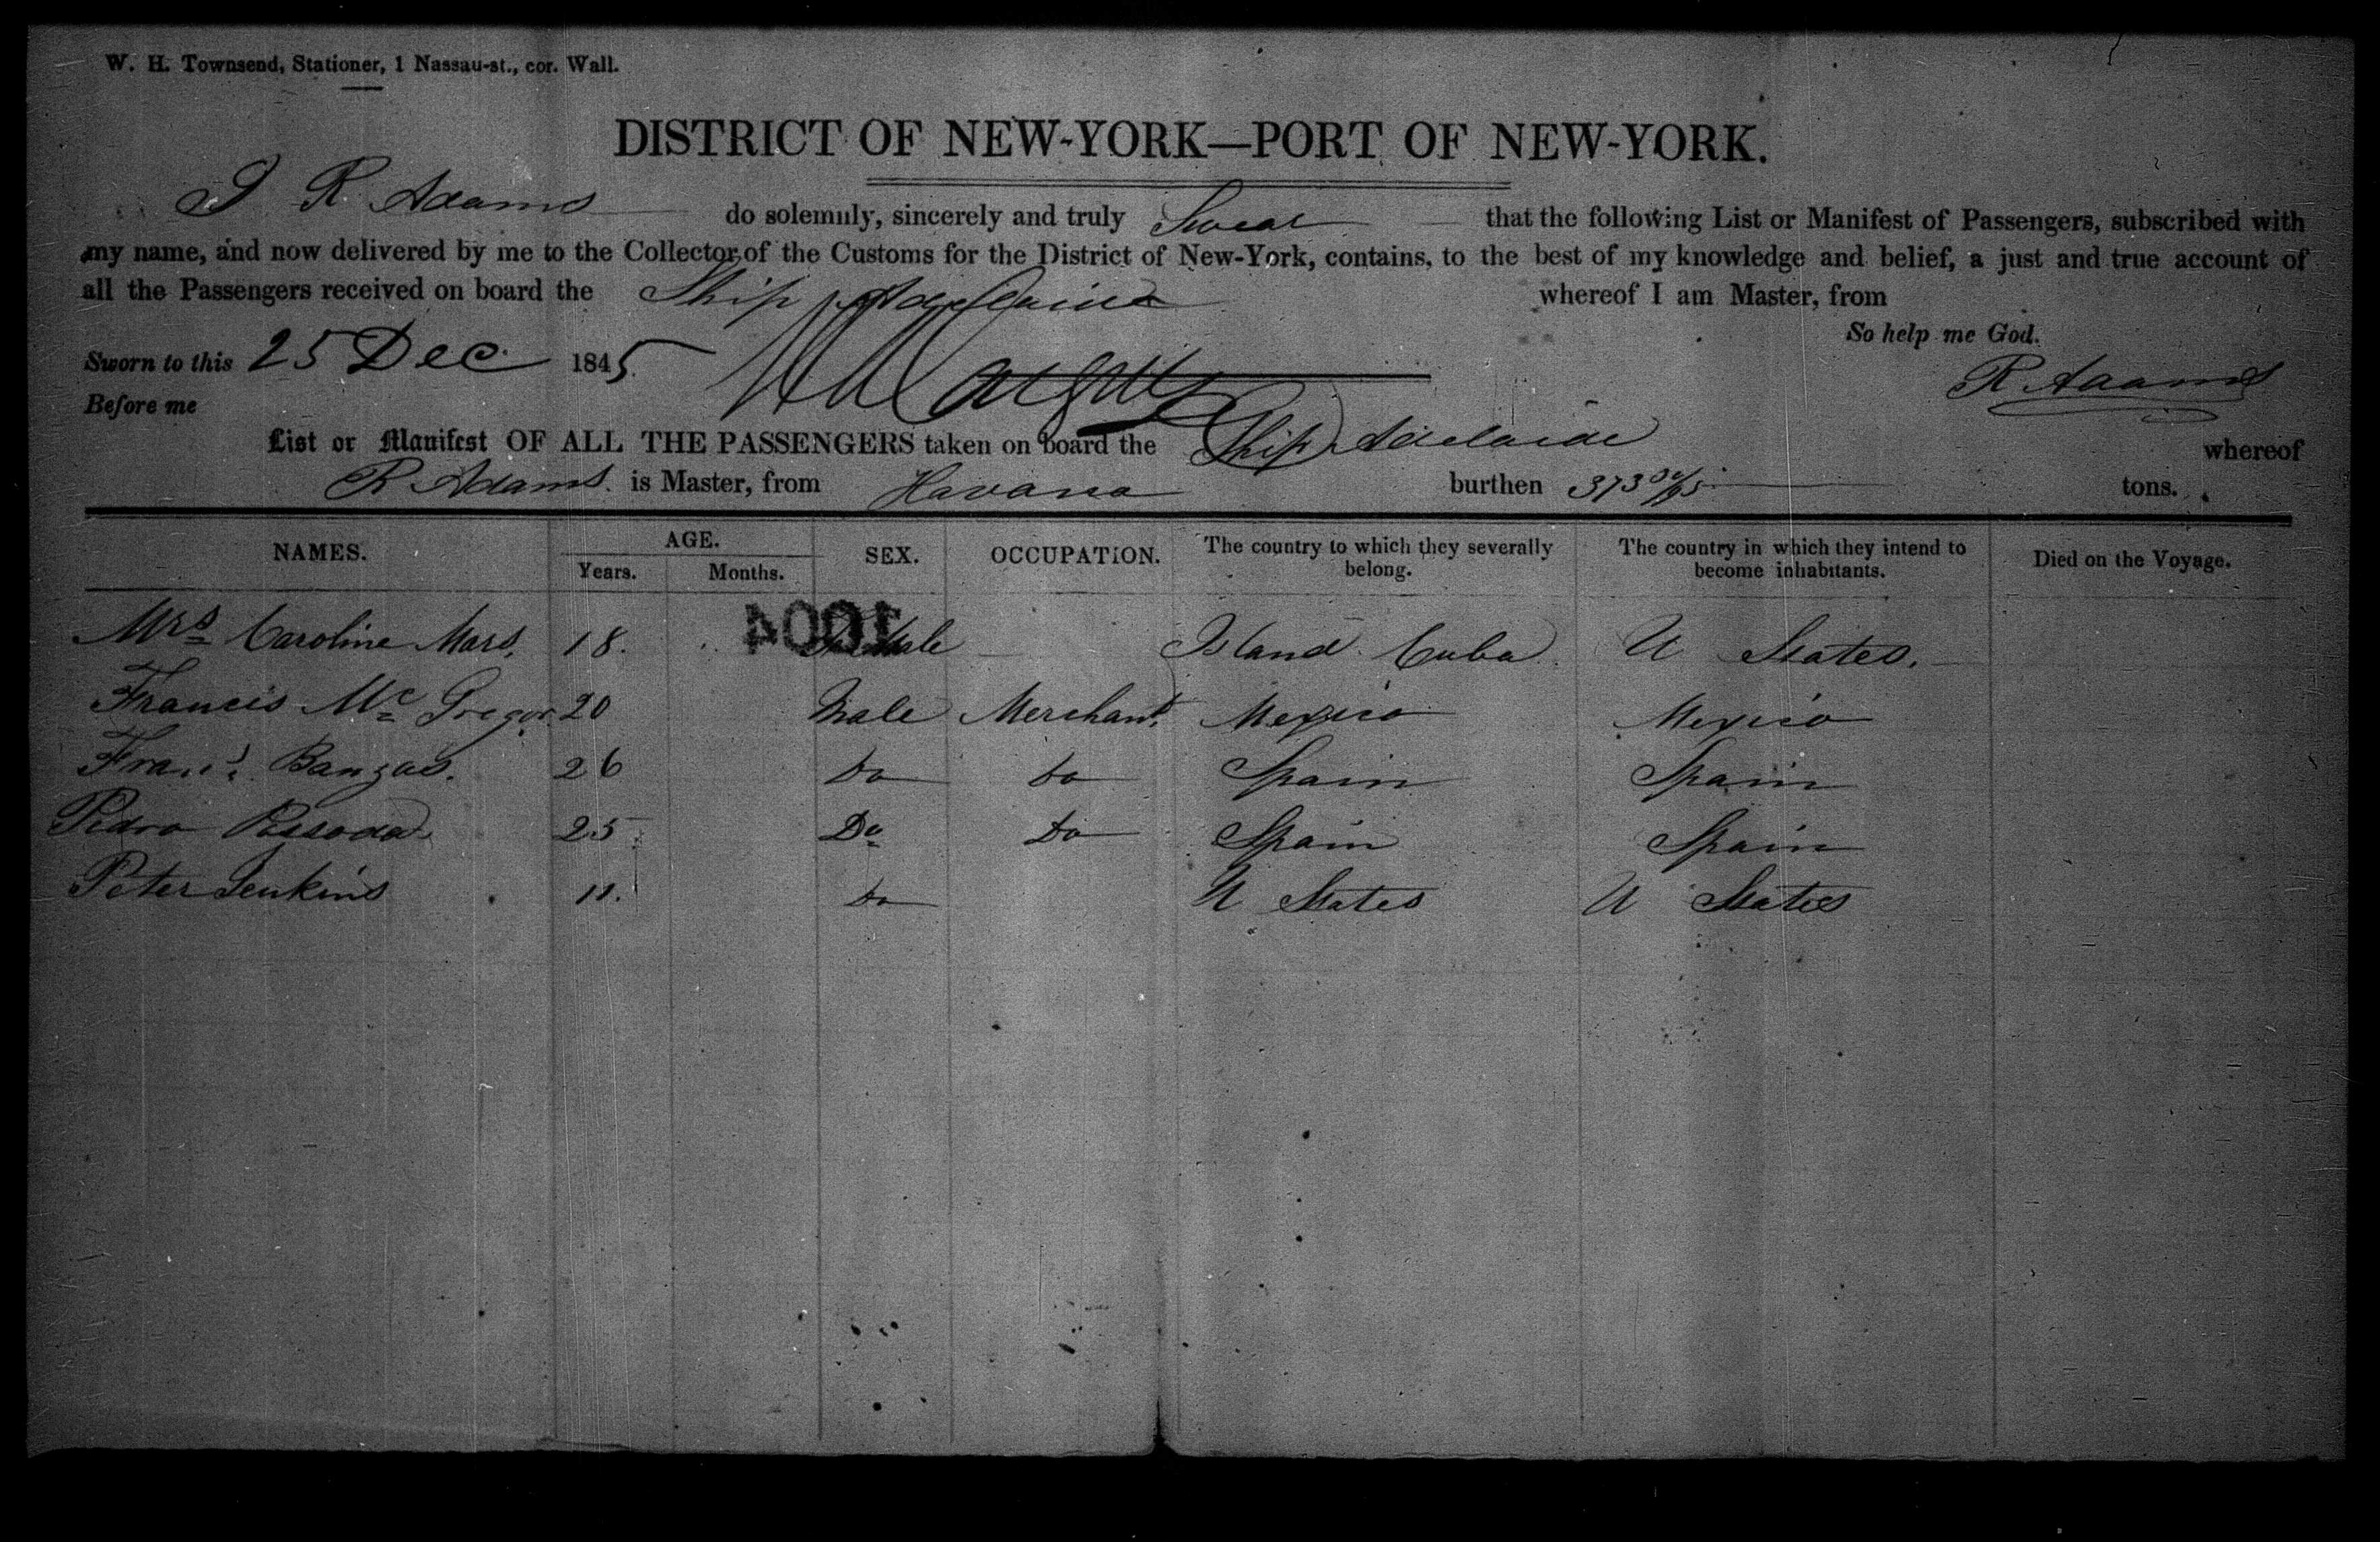 W. H. Townsend, Stationer, 1 Nassau-st., cor. Wall.
DISTRICT OF NEW-YORK—PORT OF NEW-YORK.
I R. Adams do solemnly, sincerely and truly Swear that the following List or Manifest of Passengers, subscribed with
my name, and now delivered by me to the Collector of the Customs for the District of New-York, contains, to the best of my knowledge and belief, a just and true account of
all the Passengers received on board the Ship Adelaide whereof I am Master, from
So help me God.
Sworn to this 25 Dec 1845
R Adams
Before me
List or Manifest OF ALL THE PASSENGERS taken on board the Ship Adelaide whereof
R Adams is Master, from Havana burthen 373 tons.
NAMES. AGE. SEX. OCCUPATION. The country to which they severally belong. The country in which they intend to become inhabitants. Died on the Voyage.
Years. Months.
1004
Mrs Caroline Mars. 18. Female Island Cuba U States.
Francis Mc Gregor 20 Male Merchant Mexico Mexico
Banzas. 26 do do Spain Spain
Pedro 25 Do Do Spain Spain
Peter Jenkins 11. do U States U States